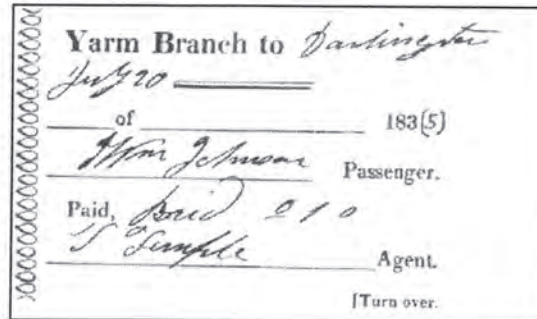 Yarm Branch to Darlington
July 20
of 183(5)
Wm Johnson Passenger.
Paid, Paid 0 1 0
T Temple Agent.
[Turn over.